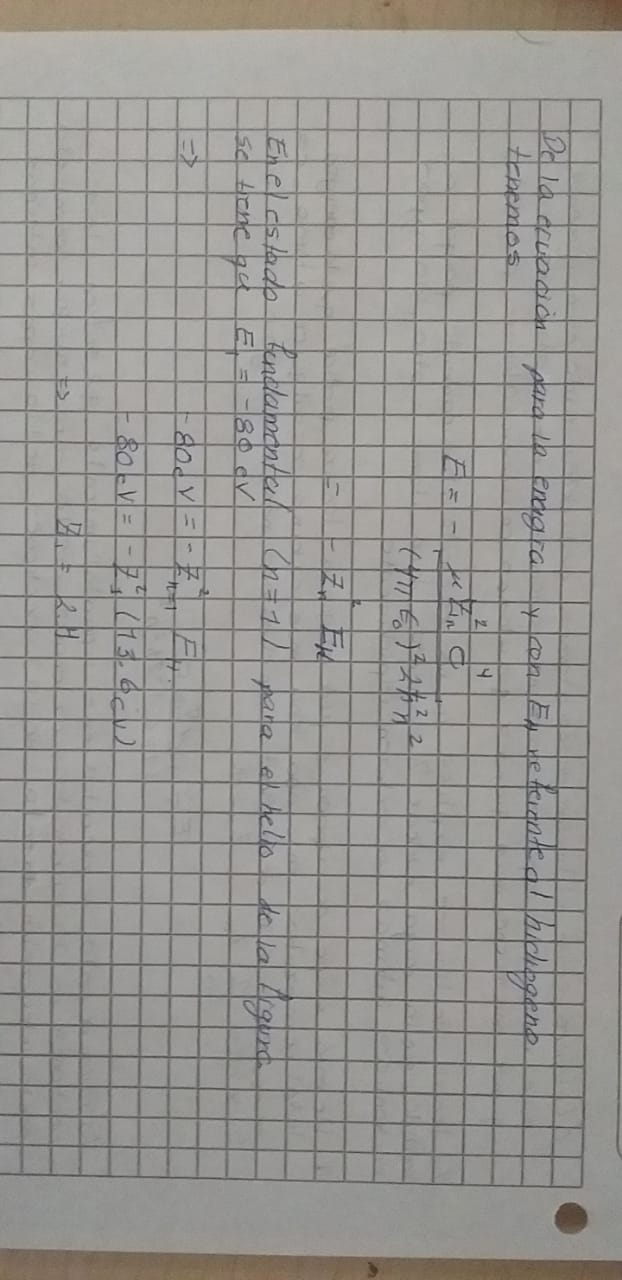 De la ecuación para la energía y con E_H referente al hidrogeno
tenemos
E = - μ Z_n² e⁴ / (4π ϵ₀)² 2ħ² n²
= - Z_n² E_H
En el estado fundamental (n=1) para el helio de la figura
se tiene que E₁ = -80 eV
⇒ -80 eV = - Z²_{n=1} E_H.
-80 eV = - Z₁² (13.6 eV)
⇒ Z₁ = 2.4